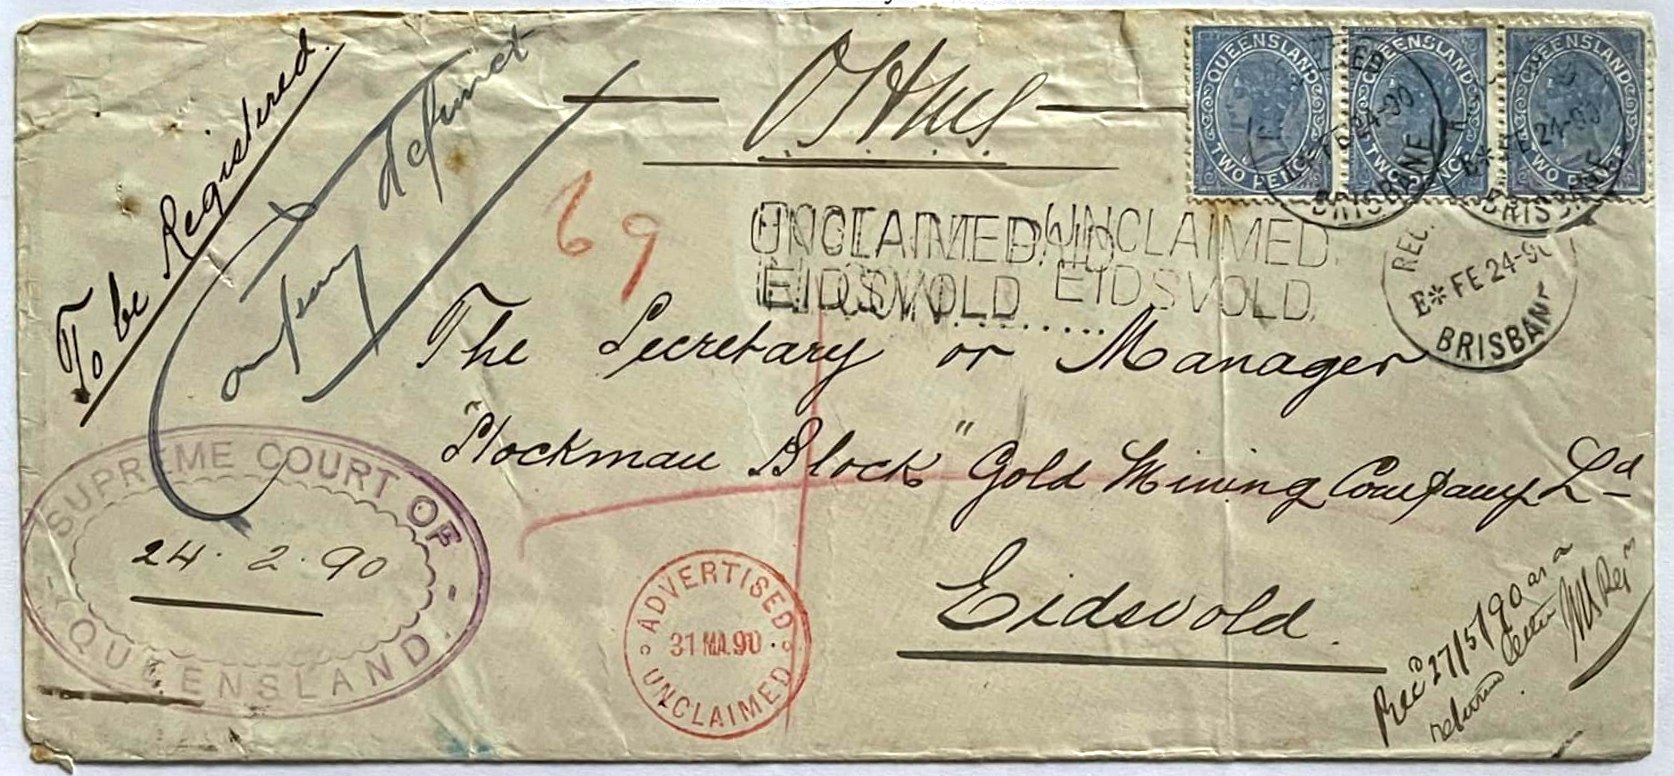 To be Registered.
Company defunct
OHMS
QUEENSLAND
TWO PENCE
QUEENSLAND
TWO PENCE
QUEENSLAND
TWO PENCE
FE 24-90
BRISBANE
24-90
BRISBANE
REG.
E* FE 24-90
BRISBANE
69
UNCLAIMED
EIDSVOLD
UNCLAIMED.
EIDSVOLD.
The Secretary or Manager
"Stockman Block" Gold Mining Company Ld
Eidsvold.
SUPREME COURT OF
24. 2. 90
QUEENSLAND
ADVERTISED
31 MA.90
UNCLAIMED
Recd 27/5/90 as a
returned letter